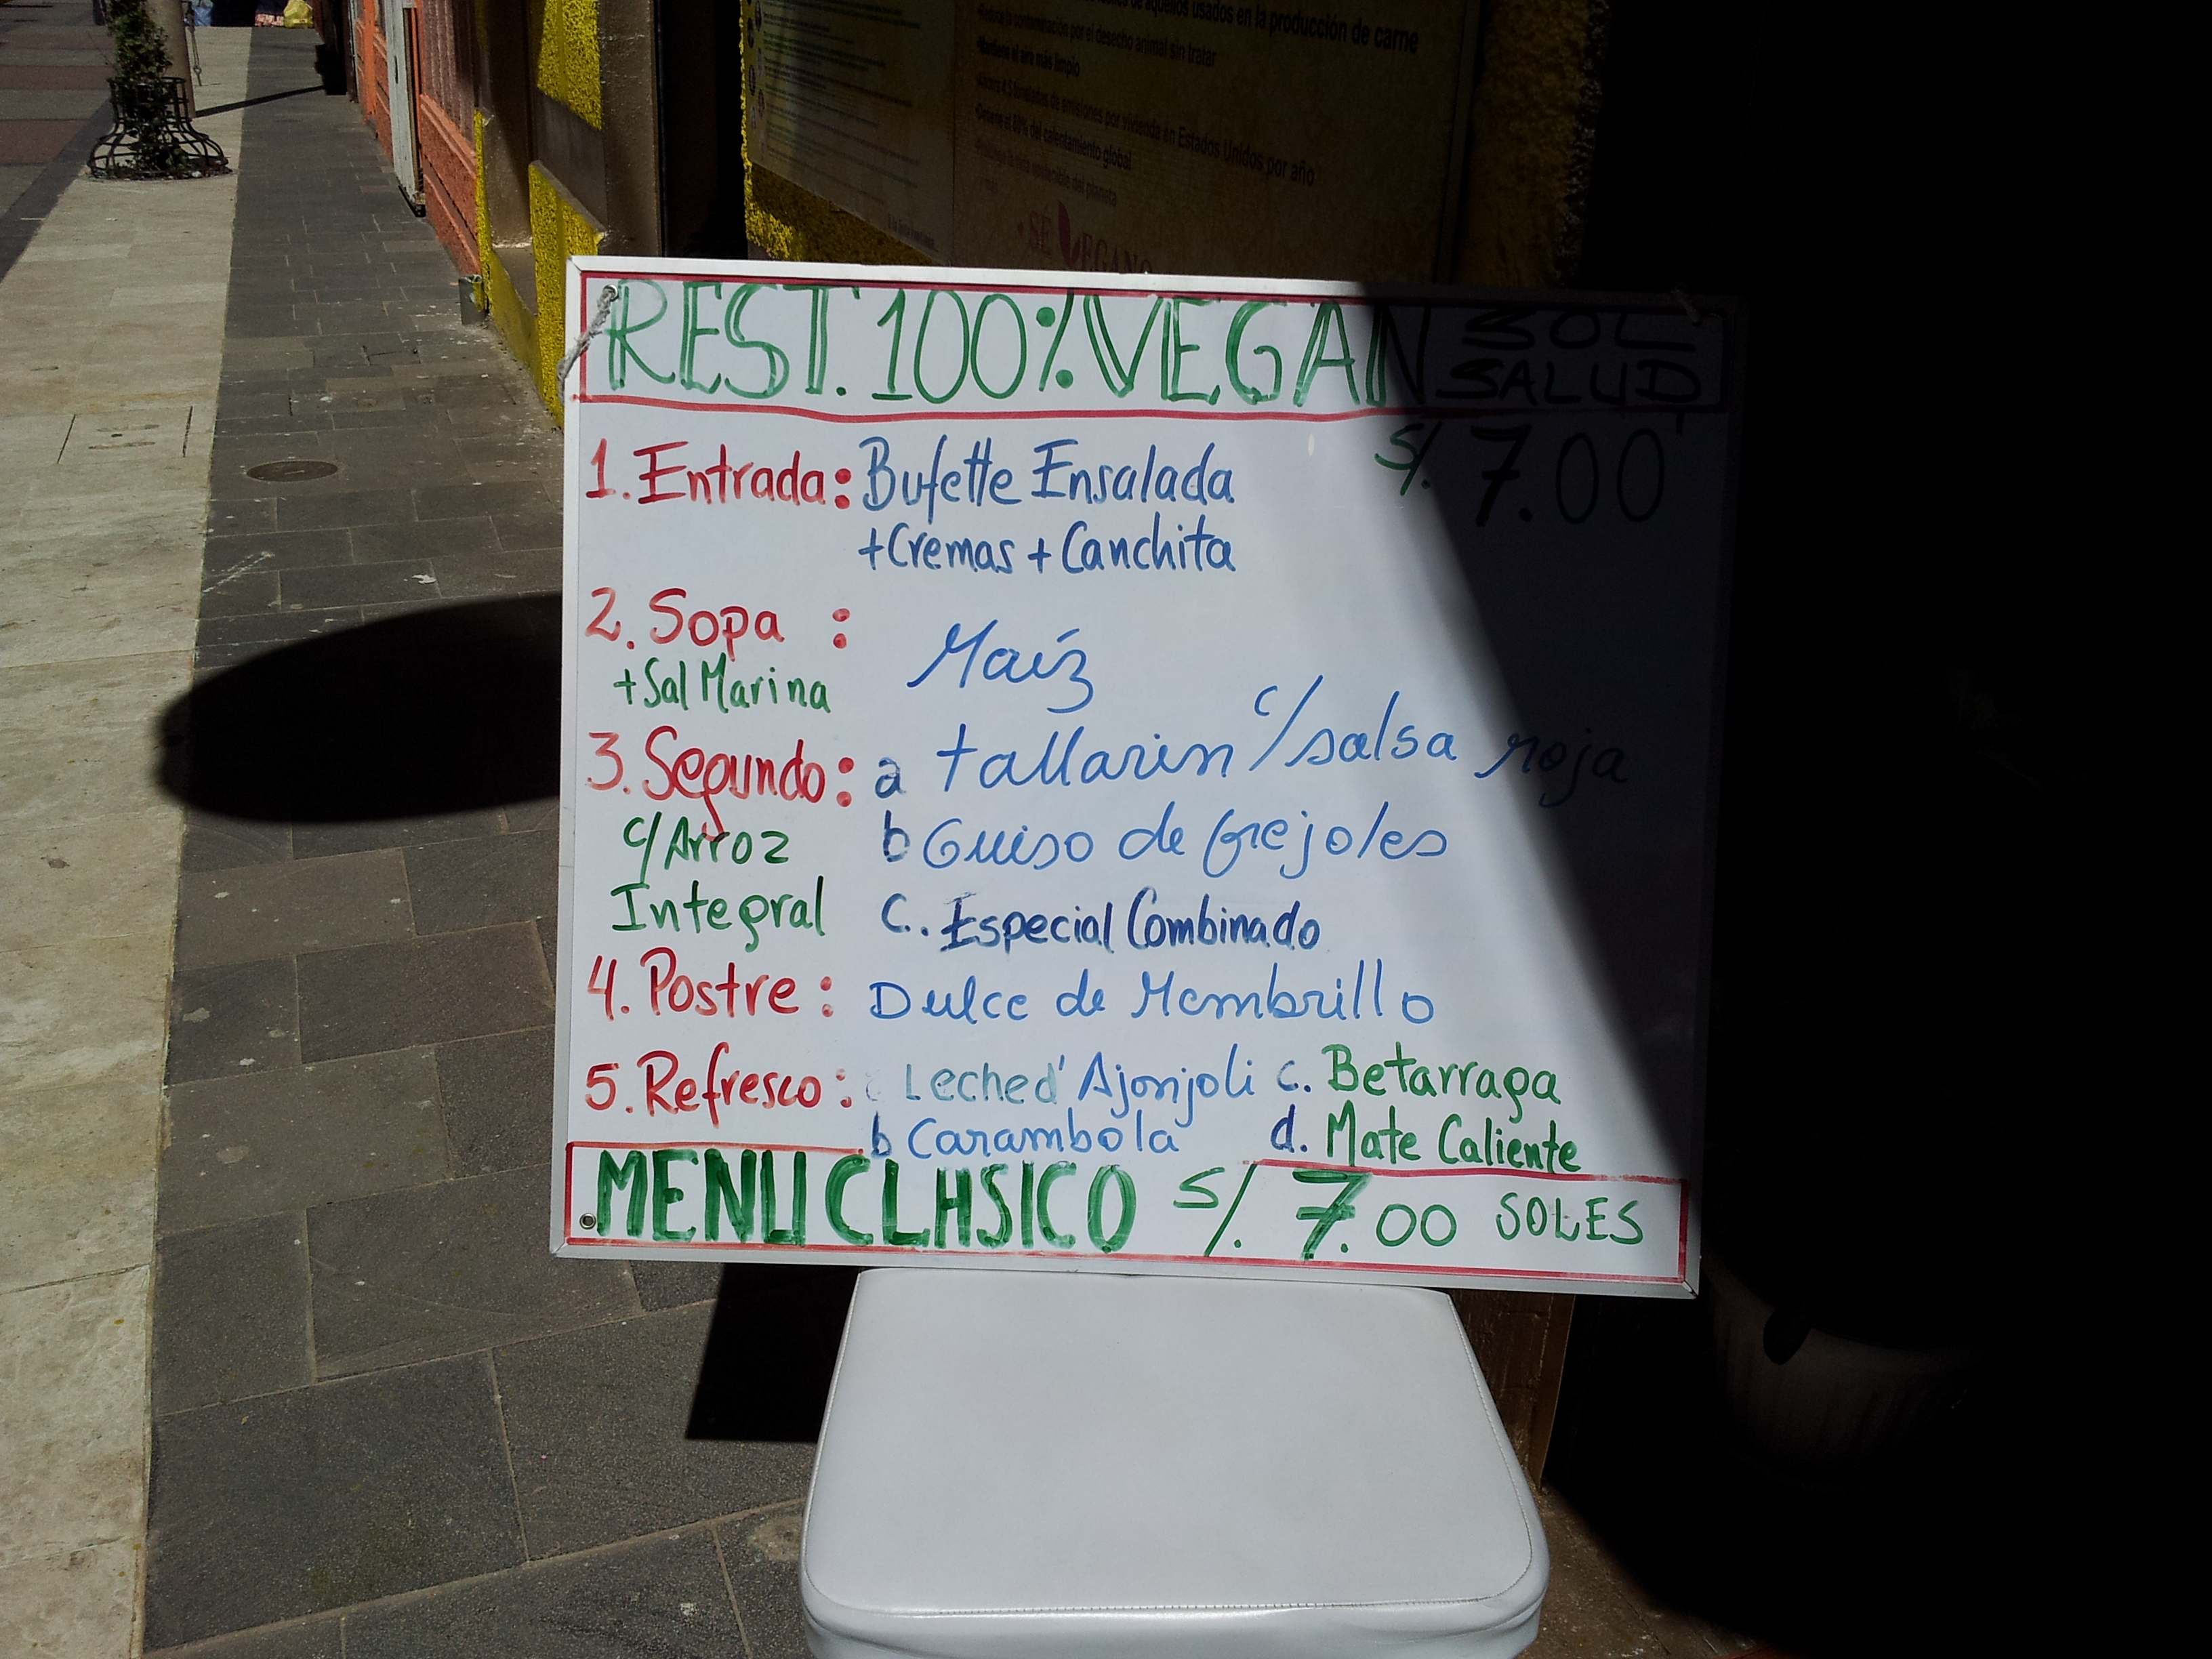 de aquellos usados en la producción de carne
•Reduce la contaminación por el desecho animal sin tratar
•Mantiene el aire más limpio
•Ahorra 4.5 toneladas de emisiones por vivienda en Estados Unidos por año
•Detiene el 80% del calentamiento global
del planeta
SÉ VEGANO
REST. 100% VEGAN SOL SALUD
S/. 7.00
1. Entrada: Bufette Ensalada
+Cremas + Canchita
2. Sopa : Maíz
+Sal Marina
3. Segundo: a tallarin c/salsa roja
c/Arroz b Guiso de frejoles
Integral c.. Especial Combinado
4. Postre: Dulce de Membrillo
5. Refresco: Leche d' Ajonjoli c. Betarraga
b Carambola d. Mate Caliente
MENU CLASICO S/. 7.00 SOLES